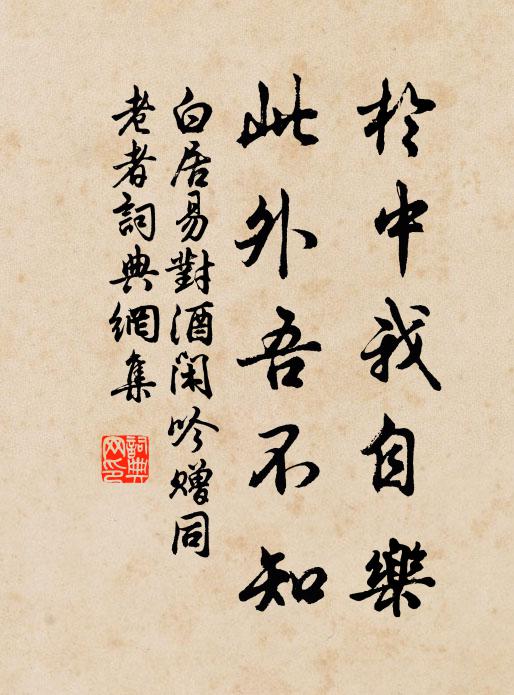 於中我自樂
此外吾不知
白居易對酒閑吟贈同
老者詞典網集
詞典
网印